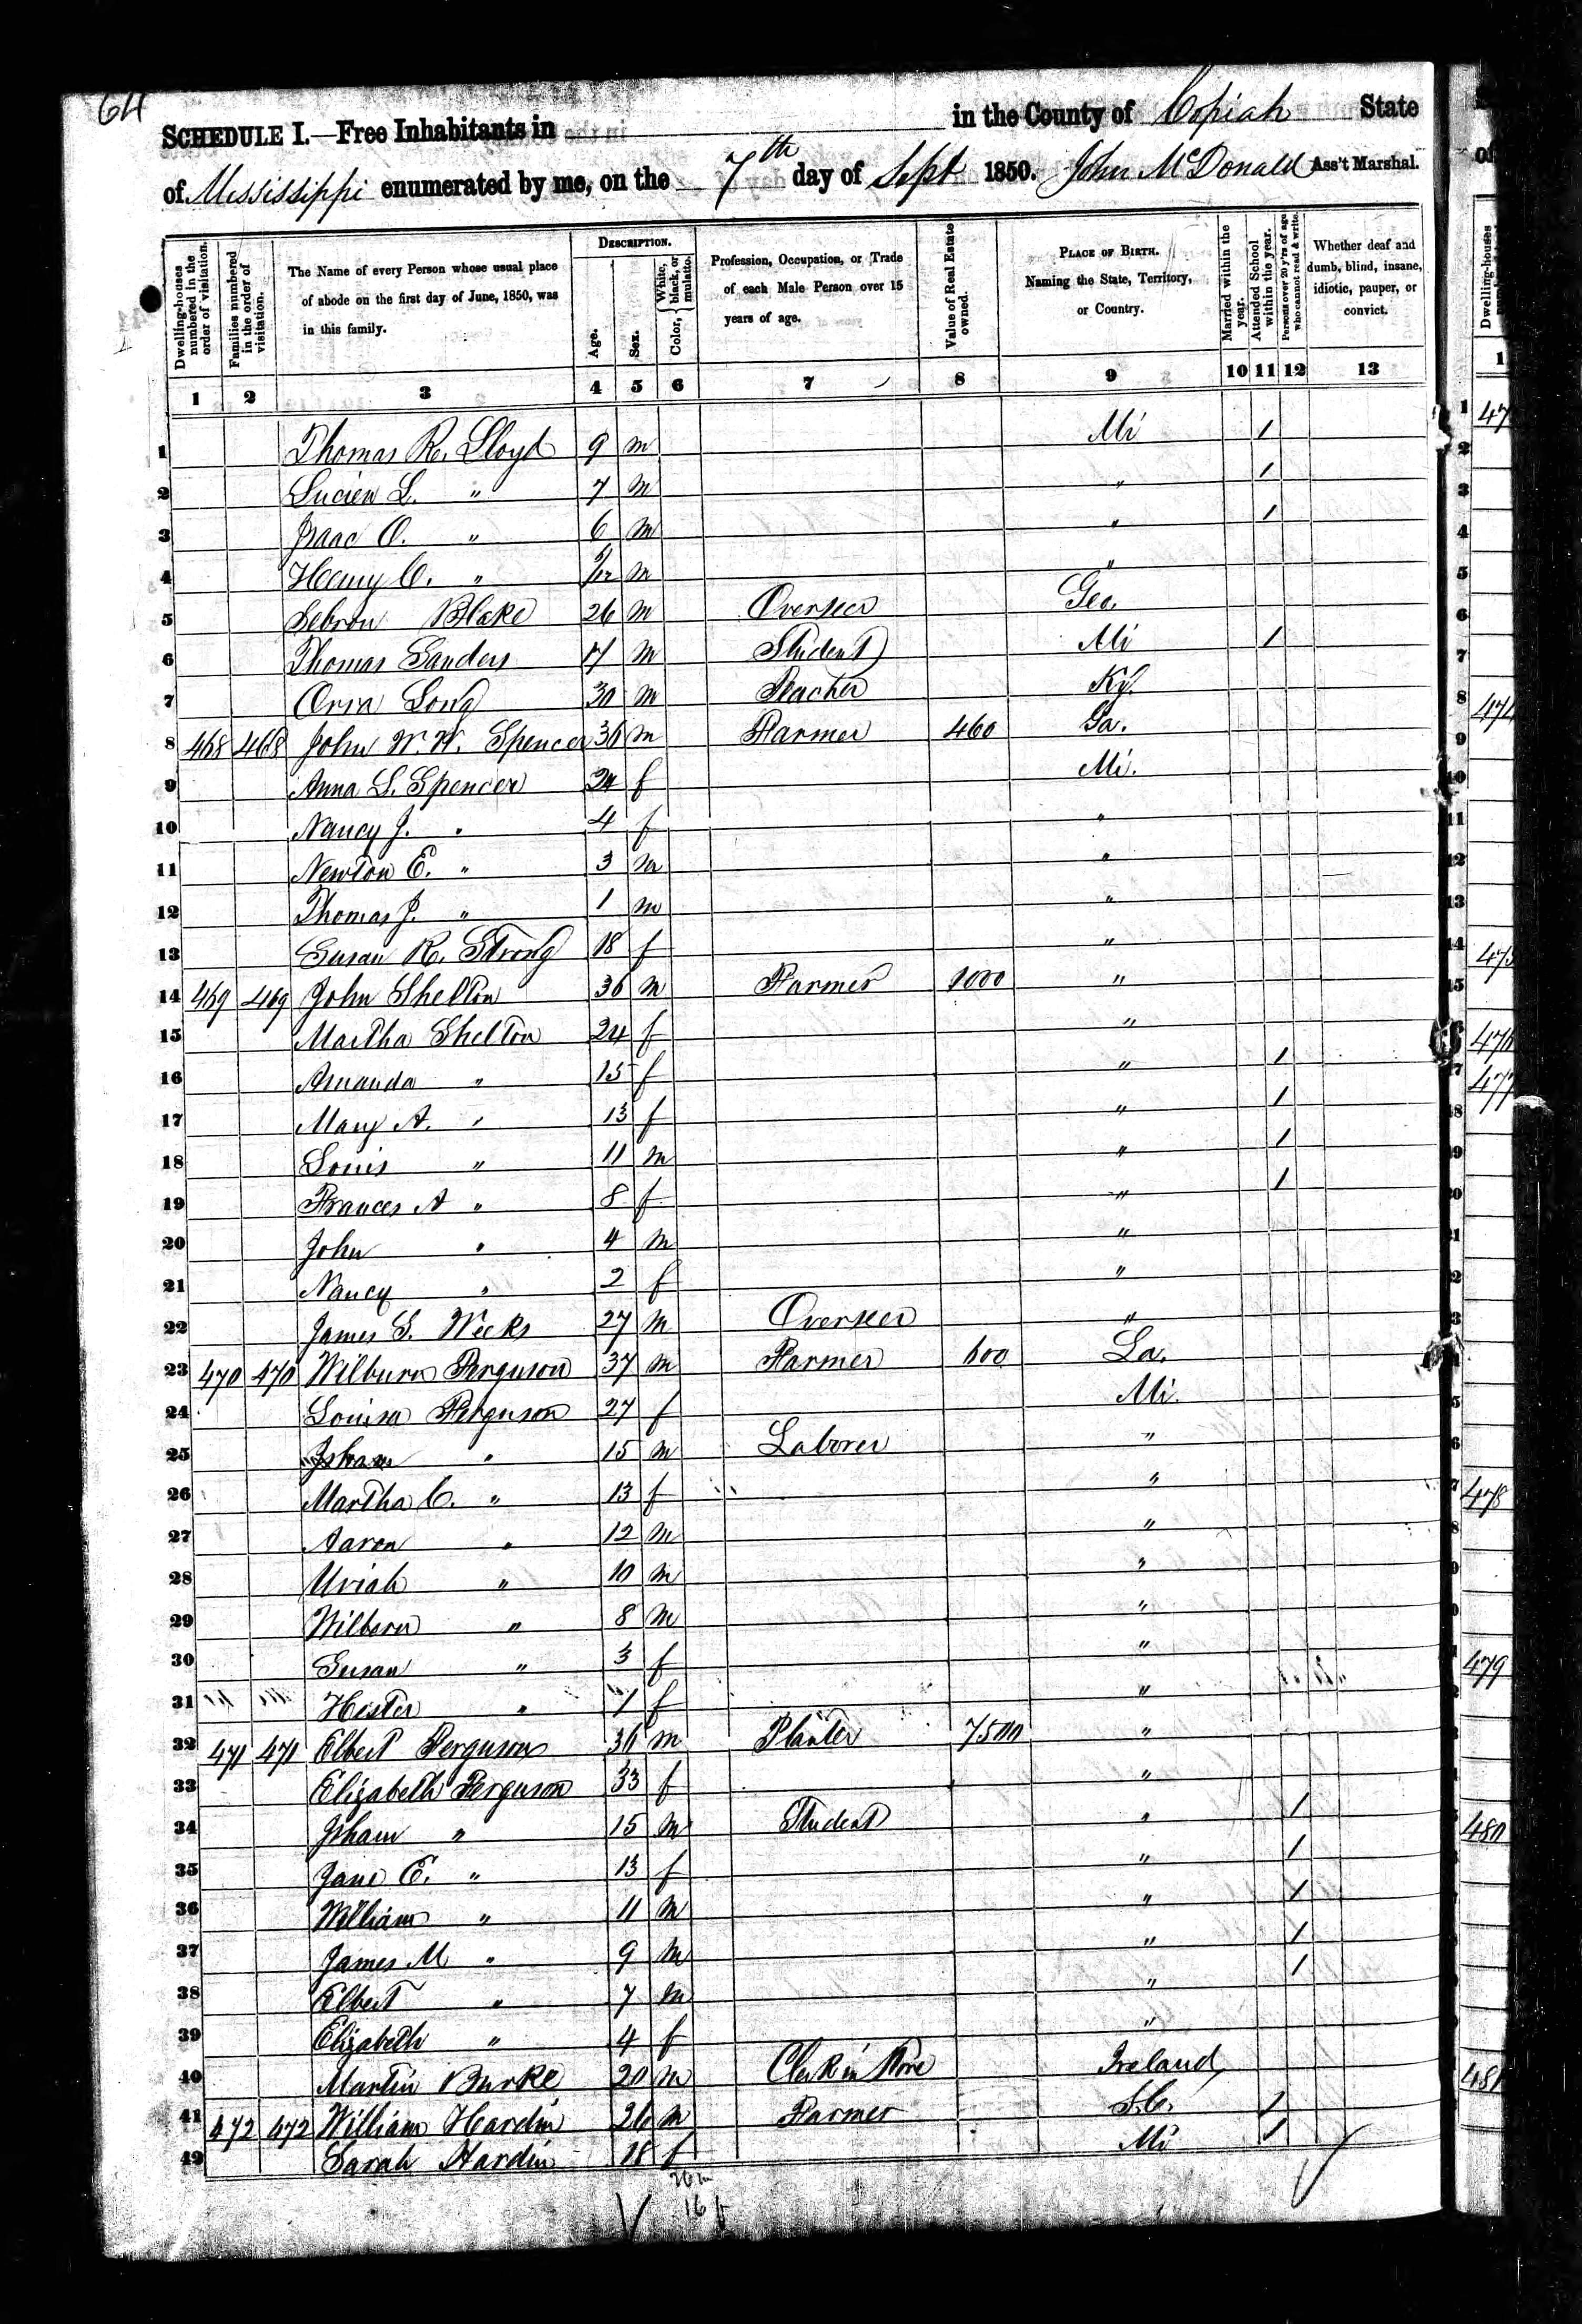 64
SCHEDULE I.—Free Inhabitants in in the County of Copiah State
of Mississippi enumerated by me, on the 7th day of Sept 1850. John McDonald Ass't Marshal.
Dwelling-houses numbered in the order of visitation.
Families numbered in the order of visitation.
The Name of every Person whose usual place of abode on the first day of June, 1850, was in this family.
DESCRIPTION.
Age.
Sex.
Color, { White, black, or mulatto.
Profession, Occupation, or Trade of each Male Person over 15 years of age.
Value of Real Estate owned.
PLACE OF BIRTH. Naming the State, Territory, or Country.
Married within the year.
Attended School within the year.
Persons over 20 y'rs of age who cannot read & write.
Whether deaf and dumb, blind, insane, idiotic, pauper, or convict.
1 2 3 4 5 6 7 8 9 10 11 12 13
1 Thomas R. Lloyd 9 m Mi 1
2 Lucien L. " 7 m " 1
3 Isaac O. " 6 m " 1
4 Henry C. " m "
5 Sebron Blake 26 m Overseer Geo.
6 Thomas Sanders 17 m Student Mi 1
7 Orra Long 30 m Teacher Ky.
8 468 468 John W. W. Spencer 36 m Farmer 460 Ga.
9 Anna L. Spencer 24 f Mi.
10 Nancy J. " 4 f "
11 Newton E. " 3 m "
12 Thomas J. " 1 m "
13 Susan R. Strong 18 f "
14 469 469 John Shelton 36 m Farmer 1000 "
15 Martha Shelton 24 f "
16 Amanda " 15 f " 1
17 Mary A. " 13 f " 1
18 Louis " 11 m " 1
19 Frances A " 8 f " 1
20 John " 4 m "
21 Nancy " 2 f "
22 James S. Weeks 27 m Overseer "
23 470 470 Wilburn Ferguson 37 m Farmer 600 La.
24 Louisa Ferguson 27 f Mi.
25 Isham " 15 m Laborer "
26 Martha C. " 13 f "
27 Aaron " 12 m "
28 Uriah " 10 m "
29 Wilburn " 8 m "
30 Susan " 3 f "
31 Hester " 1 f "
32 471 471 Elbert Ferguson 36 m Planter 7500 "
33 Elizabeth Ferguson 33 f "
34 Isham " 15 m Student " 1
35 Jane E. " 13 f " 1
36 William " 11 m " 1
37 James M " 9 m " 1
38 Elbert " 7 m " 1
39 Elizabeth " 4 f "
40 Martin Burke 20 m Clerk in Store Ireland
41 472 472 William Hardin 26 m Farmer S.C. 1
42 Sarah Hardin 18 f Mi 1
26 m
16 f